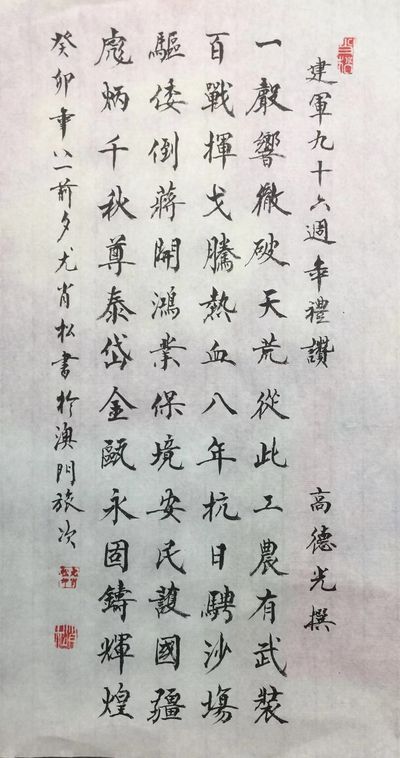 建軍九十六週年禮讚 高德光撰
一聲響徹破天荒從此工農有武裝
百戰揮戈騰熱血八年抗日騁沙場
驅倭倒蔣開鴻業保境安民護國疆
彪炳千秋尊泰岱金甌永固鑄輝煌
癸卯年八一前夕尤肖松書於澳門旅次